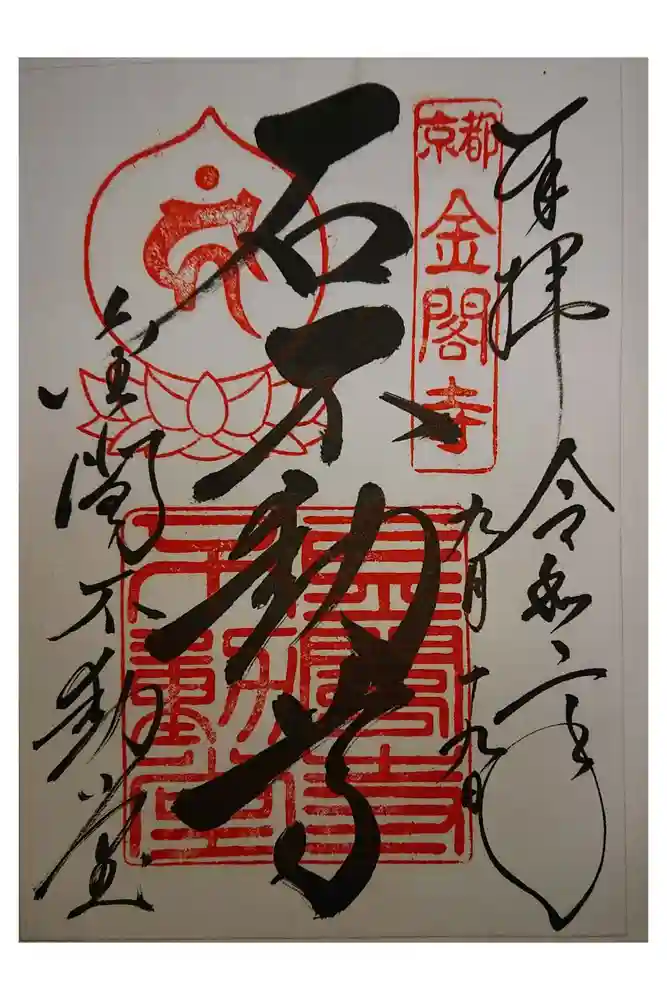 奉拝 令和二年
九月十九日
京都
金閣寺
石不動尊
金閣寺
不動堂
金閣不動堂